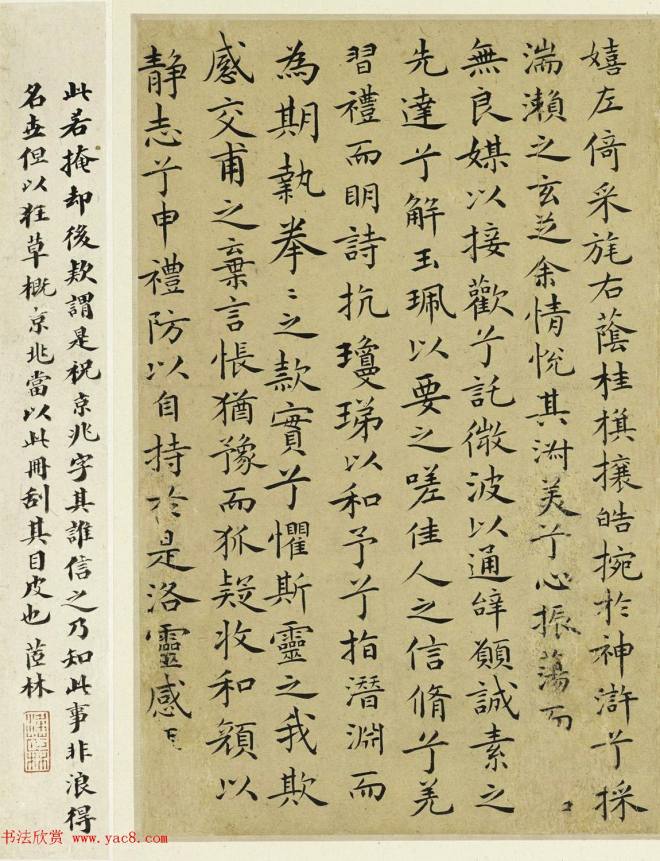 嬉左倚采旄右蔭桂旗攘皓捥於神滸兮採
湍瀨之玄芝余情悅其淑美兮心振蕩而
無良媒以接歡兮託微波以通辭願誠素之
先達兮解玉珮以要之嗟佳人之信脩兮羌
習禮而明詩抗瓊珶以和予兮指潛淵而
為期執拳〻之款實兮懼斯靈之我欺
感交甫之棄言悵猶豫而狐疑收和顏以
静志兮申禮防以自持於是洛靈感焉
此若掩却後款謂是祝京兆字其誰信之乃知此事非浪得
名世但以狂草概京兆當以此冊刮其目皮也 茝林
书法欣赏 www.yac8.com